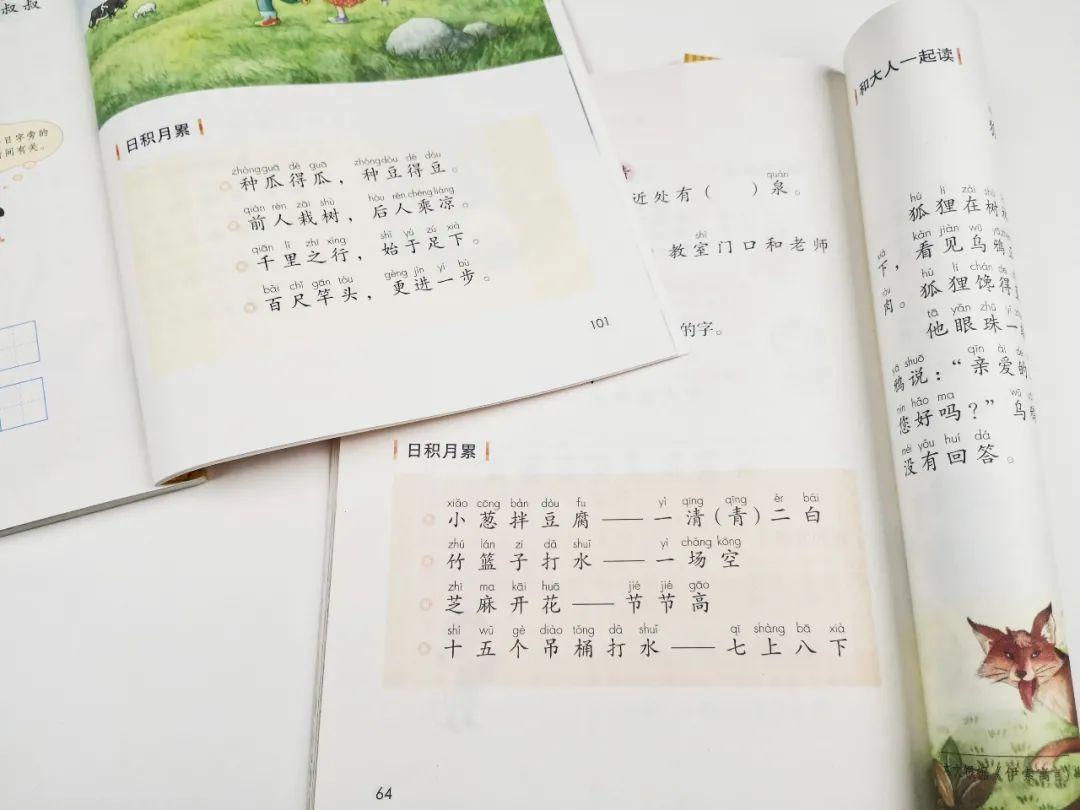 叔叔
日字旁的
间有关。
日积月累
zhòngguā dé guā zhòngdòu dé dòu
种瓜得瓜，种豆得豆。
qián rén zāi shù hòu rén chéng liáng
前人栽树，后人乘凉。
qiān lǐ zhī xíng shǐ yú zú xià
千里之行，始于足下。
bǎi chǐ gān tóu gèng jìn yí bù
百尺竿头，更进一步。
101
quán
近处有（ ）泉。
shī
教室门口和老师
的字。
日积月累
xiǎo cōng bàn dòu fu yì qīng qīng èr bái
小葱拌豆腐——一清（青）二白
zhú lán zi dǎ shuǐ yì chǎng kōng
竹篮子打水——一场空
zhī ma kāi huā jié jié gāo
芝麻开花——节节高
shí wǔ gè diào tǒng dǎ shuǐ qī shàng bā xià
十五个吊桶打水——七上八下
64
和大人一起读
hú li zài shù
狐狸在树
kàn jiàn wū yā
下，看见乌鸦
hú li chán de
肉。狐狸馋得
tā yǎn zhū yí
他眼珠一
yā shuō qīn ài de
鸦说：“亲爱的
nín hǎo ma wū
您好吗？”乌
méi yǒu huí dá
没有回答。
《伊索寓言》